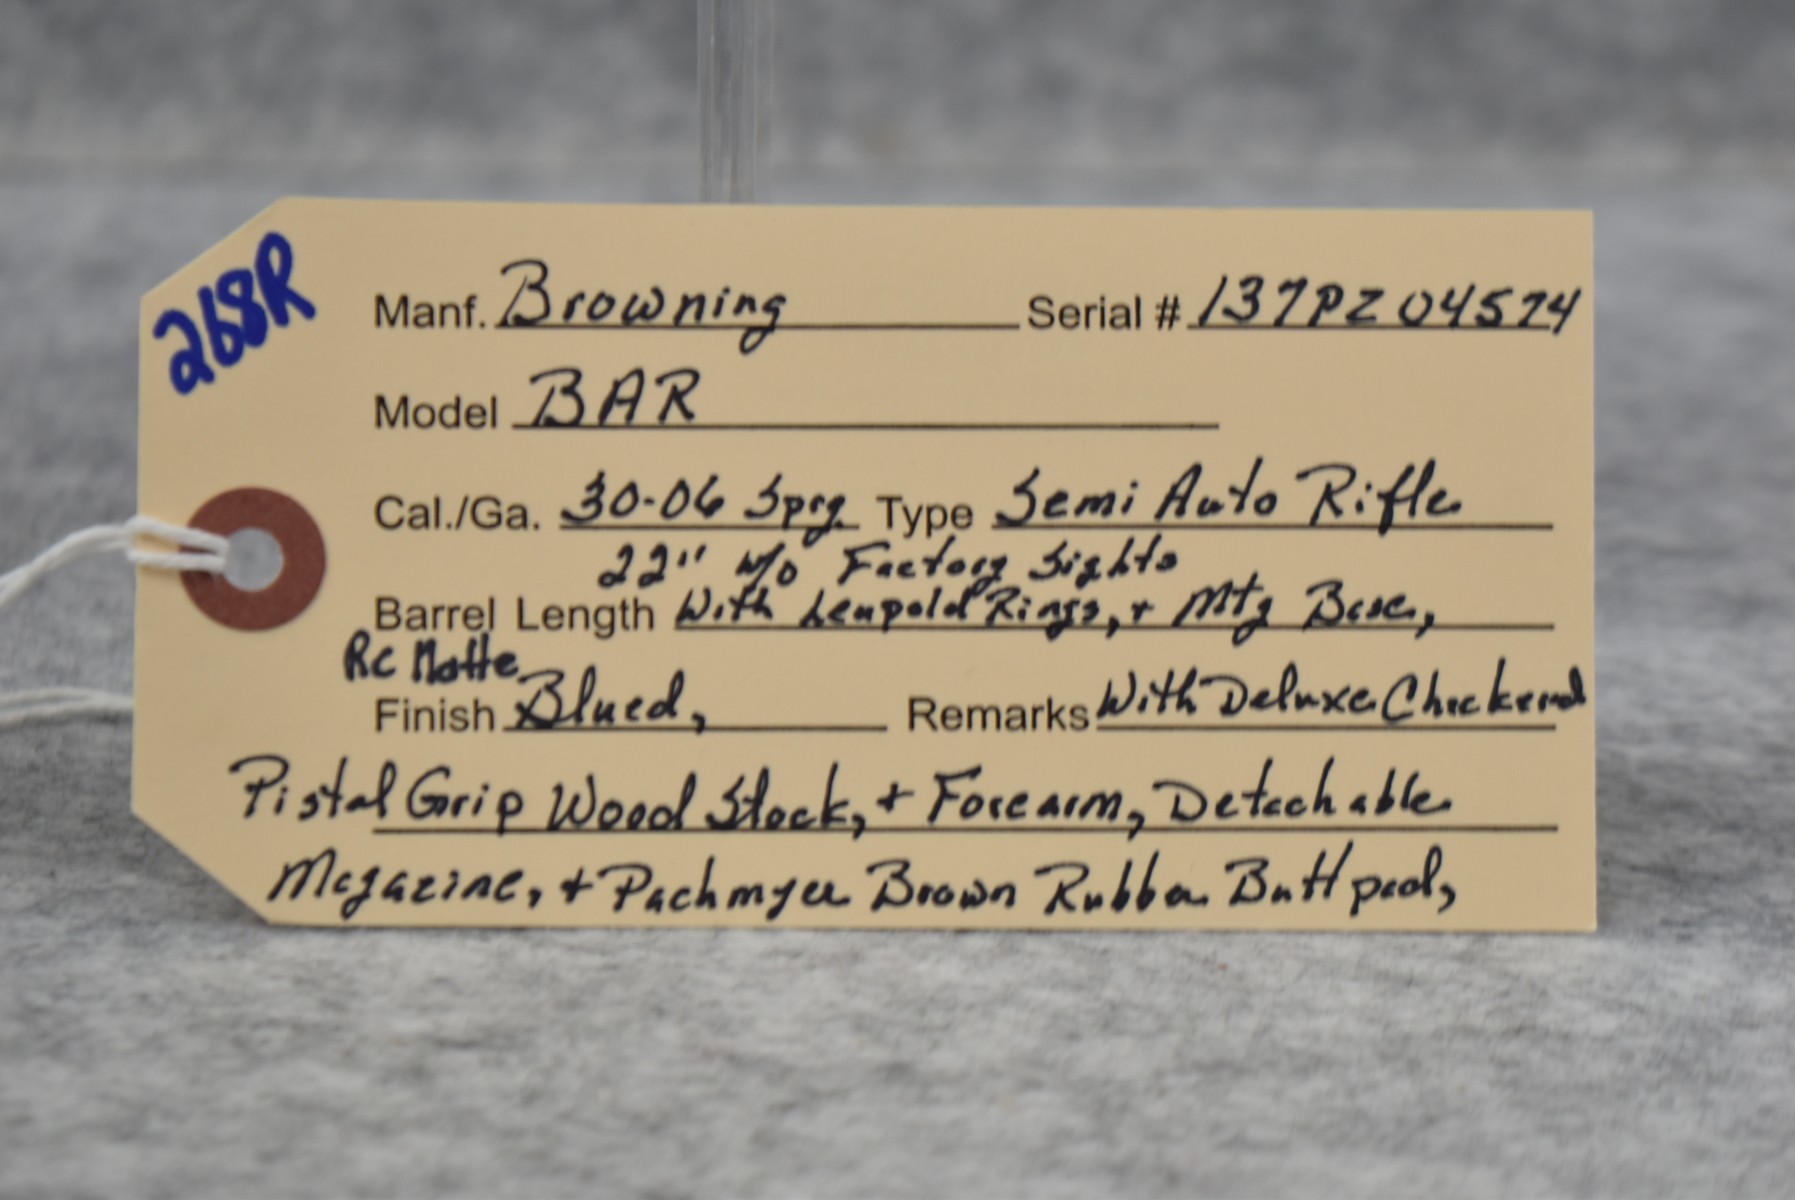 268R
Manf. Browning Serial # 137PZ04574
Model BAR
Cal./Ga. 30-06 Sprg. Type Semi Auto Rifle
22" w/o Factory Sights
Barrel Length With Leupold Rings, + Mtg Base,
RC Matte
Finish Blued, Remarks With Deluxe Checkered
Pistol Grip Wood Stock, + Forearm, Detachable
Magazine, + Pachmyer Brown Rubber Buttpad,